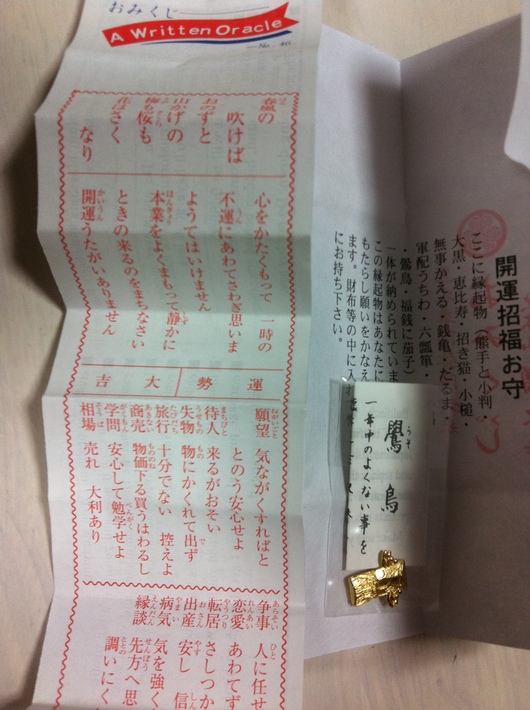 おみくじ
A Written Oracle
No. 46
春風の
吹けば
おのずと
山かげの
梅も桜も
花はさく
なり
心をかたくもって 一時の
不運にあわてさわぎ思いま
ようてはいけません
本業をよくまもって静かに
ときの来るのをまちなさい
開運うたがいありません
運勢 大吉
願望 気ながくすればと
とのう安心せよ
待人 来るがおそい
失物 物にかくれて出ず
旅行 十分でない 控えよ
商売 物価下る買うはわるし
学問 安心して勉学せよ
相場 売れ 大利あり
争事 人に任せ
恋愛 あわてず
転居 さしつか
出産 安し 信
病気 気を強く
縁談 先方へ思
調いにく
開運招福お守
ここに縁起物(熊手と小判・
大黒・恵比寿・招き猫・小槌・
無事かえる・銭亀・だるま・
軍配うちわ・六瓢箪・
・鷽鳥・福銭に茄子)
一体が納められていま
この縁起物はあなたに
もたらし願いをかなえ
ます。財布等の中に入
にお持ち下さい。
鷽鳥
一年中のよくない事を